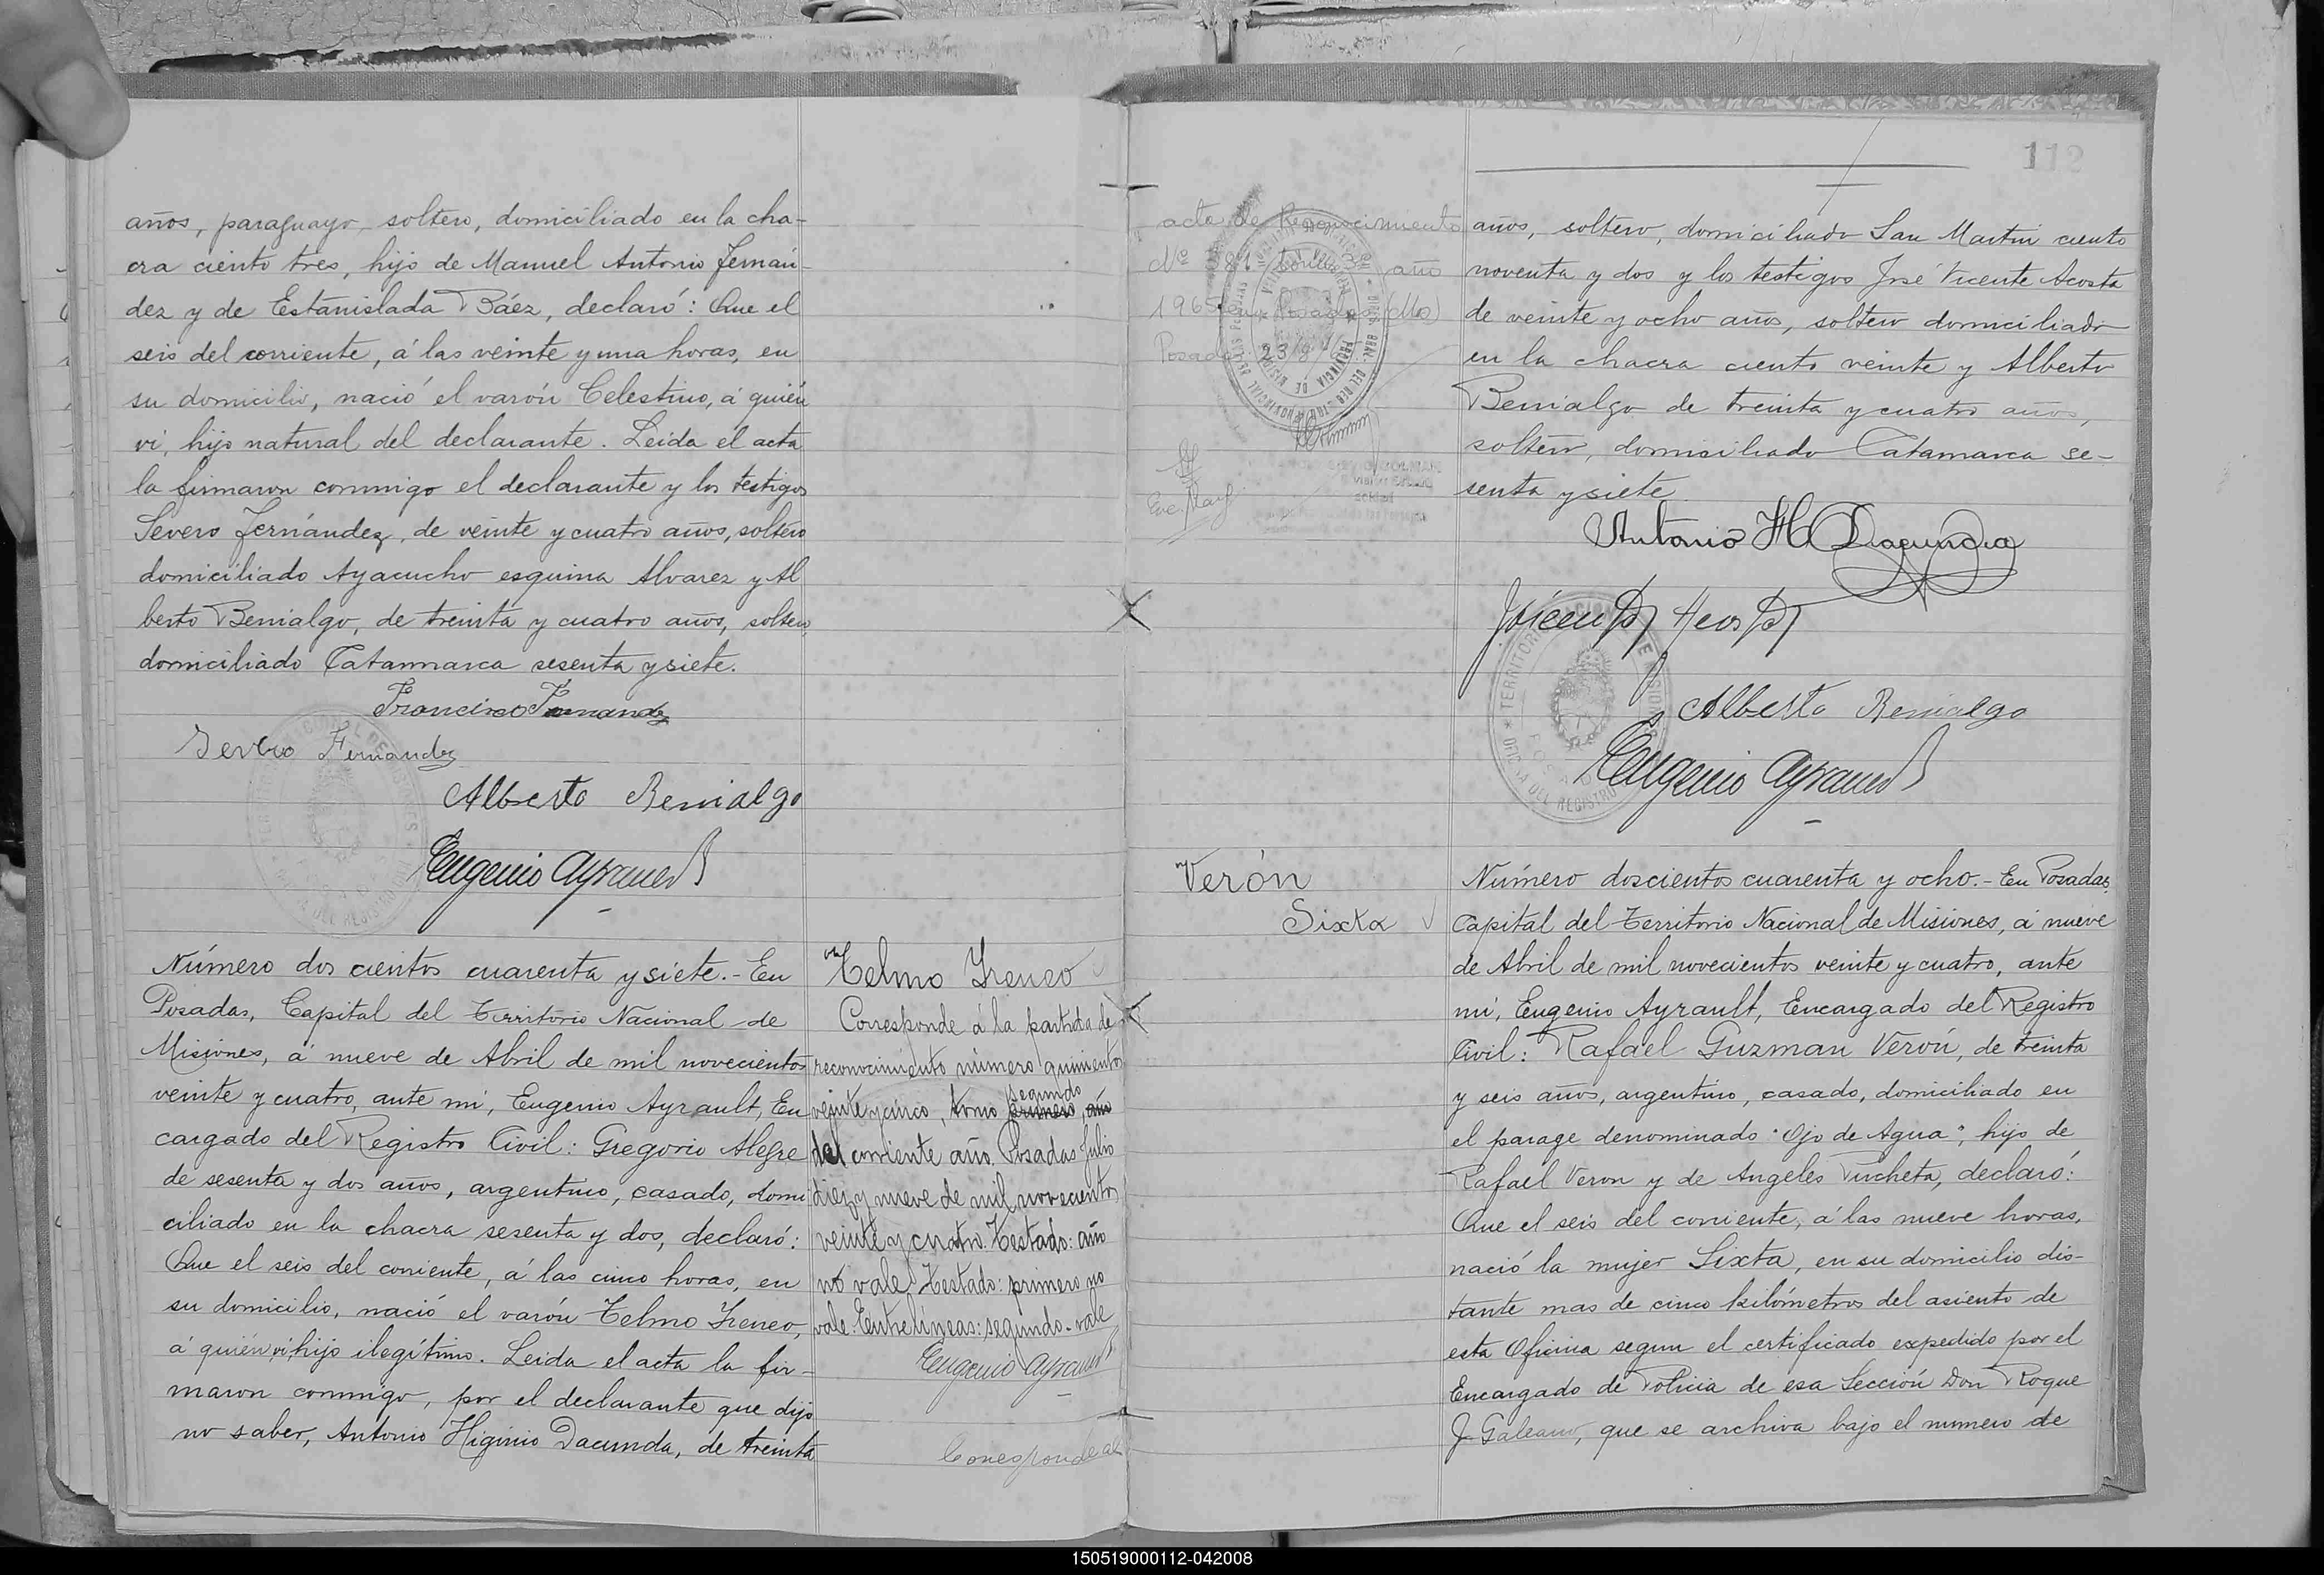 años, paraguayo, soltero, domiciliado en la cha-
cra ciento tres, hijo de Manuel Antonio Fernán-
dez y de Estanislada Báez, declaró: Que el
seis del corriente, á las veinte y una horas, en
su domicilio, nació el varón Celestino, á quién
vi, hijo natural del declarante. Leida el acta
la firmaron conmigo el declarante y los testigos
Severo Fernández, de veinte y cuatro años, soltero
domiciliado Ayacucho esquina Alvarez y Al
berto Benialgo, de treinta y cuatro años, soltero,
domiciliado Catamarca sesenta y siete.
Francisco Fernandez
Severo Fernandez
Alberto Benialgo
Eugenio Ayrault
Número dos cientos cuarenta y siete.- En
Posadas, Capital del Territorio Nacional de
Misiones, á nueve de Abril de mil novecientos
veinte y cuatro, ante mi, Eugenio Ayrault, En
cargado del Registro Civil: Gregorio Alegre
de sesenta y dos años, argentino, casado, domi
ciliado en la chacra sesenta y dos, declaró:
Que el seis del corriente, á las cinco horas, en
su domicilio, nació el varón Telmo Ireneo,
á quién vi, hijo ilegítimo. Leida el acta la fir-
maron conmigo, por el declarante que dijo
no saber, Antonio Higinio Dacunda, de treinta
Telmo Ireneo
Corresponde á la partida de
reconocimiento número quinientos
segundo
veinte y cinco, tomo primero, año
del corriente año. Posadas Julio
diez y nueve de mil novecientos
veinte y cuatro. Testado: año
no vale. Testado: primero no
vale. Entrelíneas: segundo-vale
Eugenio Ayrault
Corresponde al
112
acta de Reconocimiento
Nº 381 año
1965 Posadas (Mo)
Posadas 23/9/
años, soltero, domiciliado San Martin ciento
noventa y dos y los testigos José Vicente Acosta
de veinte y ocho años, soltero domiciliado
en la chacra ciento veinte y Alberto
Benialgo de treinta y cuatro años,
soltero, domiciliado Catamarca se-
senta y siete.
Antonio H Dacunda
JVicente Acosta
Alberto Benialgo
Eugenio Ayrault
Verón
Sixta
Número doscientos cuarenta y ocho.- En Posadas,
Capital del Territorio Nacional de Misiones, á nueve
de Abril de mil novecientos veinte y cuatro, ante
mi, Eugenio Ayrault, Encargado del Registro
Civil: Rafael Guzman Verón, de treinta
y seis años, argentino, casado, domiciliado en
el parage denominado "Ojo de Agua", hijo de
Rafael Veron y de Angeles Pucheta, declaró:
Que el seis del corriente, á las nueve horas,
nació la mujer Sixta, en su domicilio dis-
tante mas de cinco kilómetros del asiento de
esta Oficina segun el certificado expedido por el
Encargado de Policia de esa Sección Don Roque
J. Galeano, que se archiva bajo el numero de
150519000112-042008